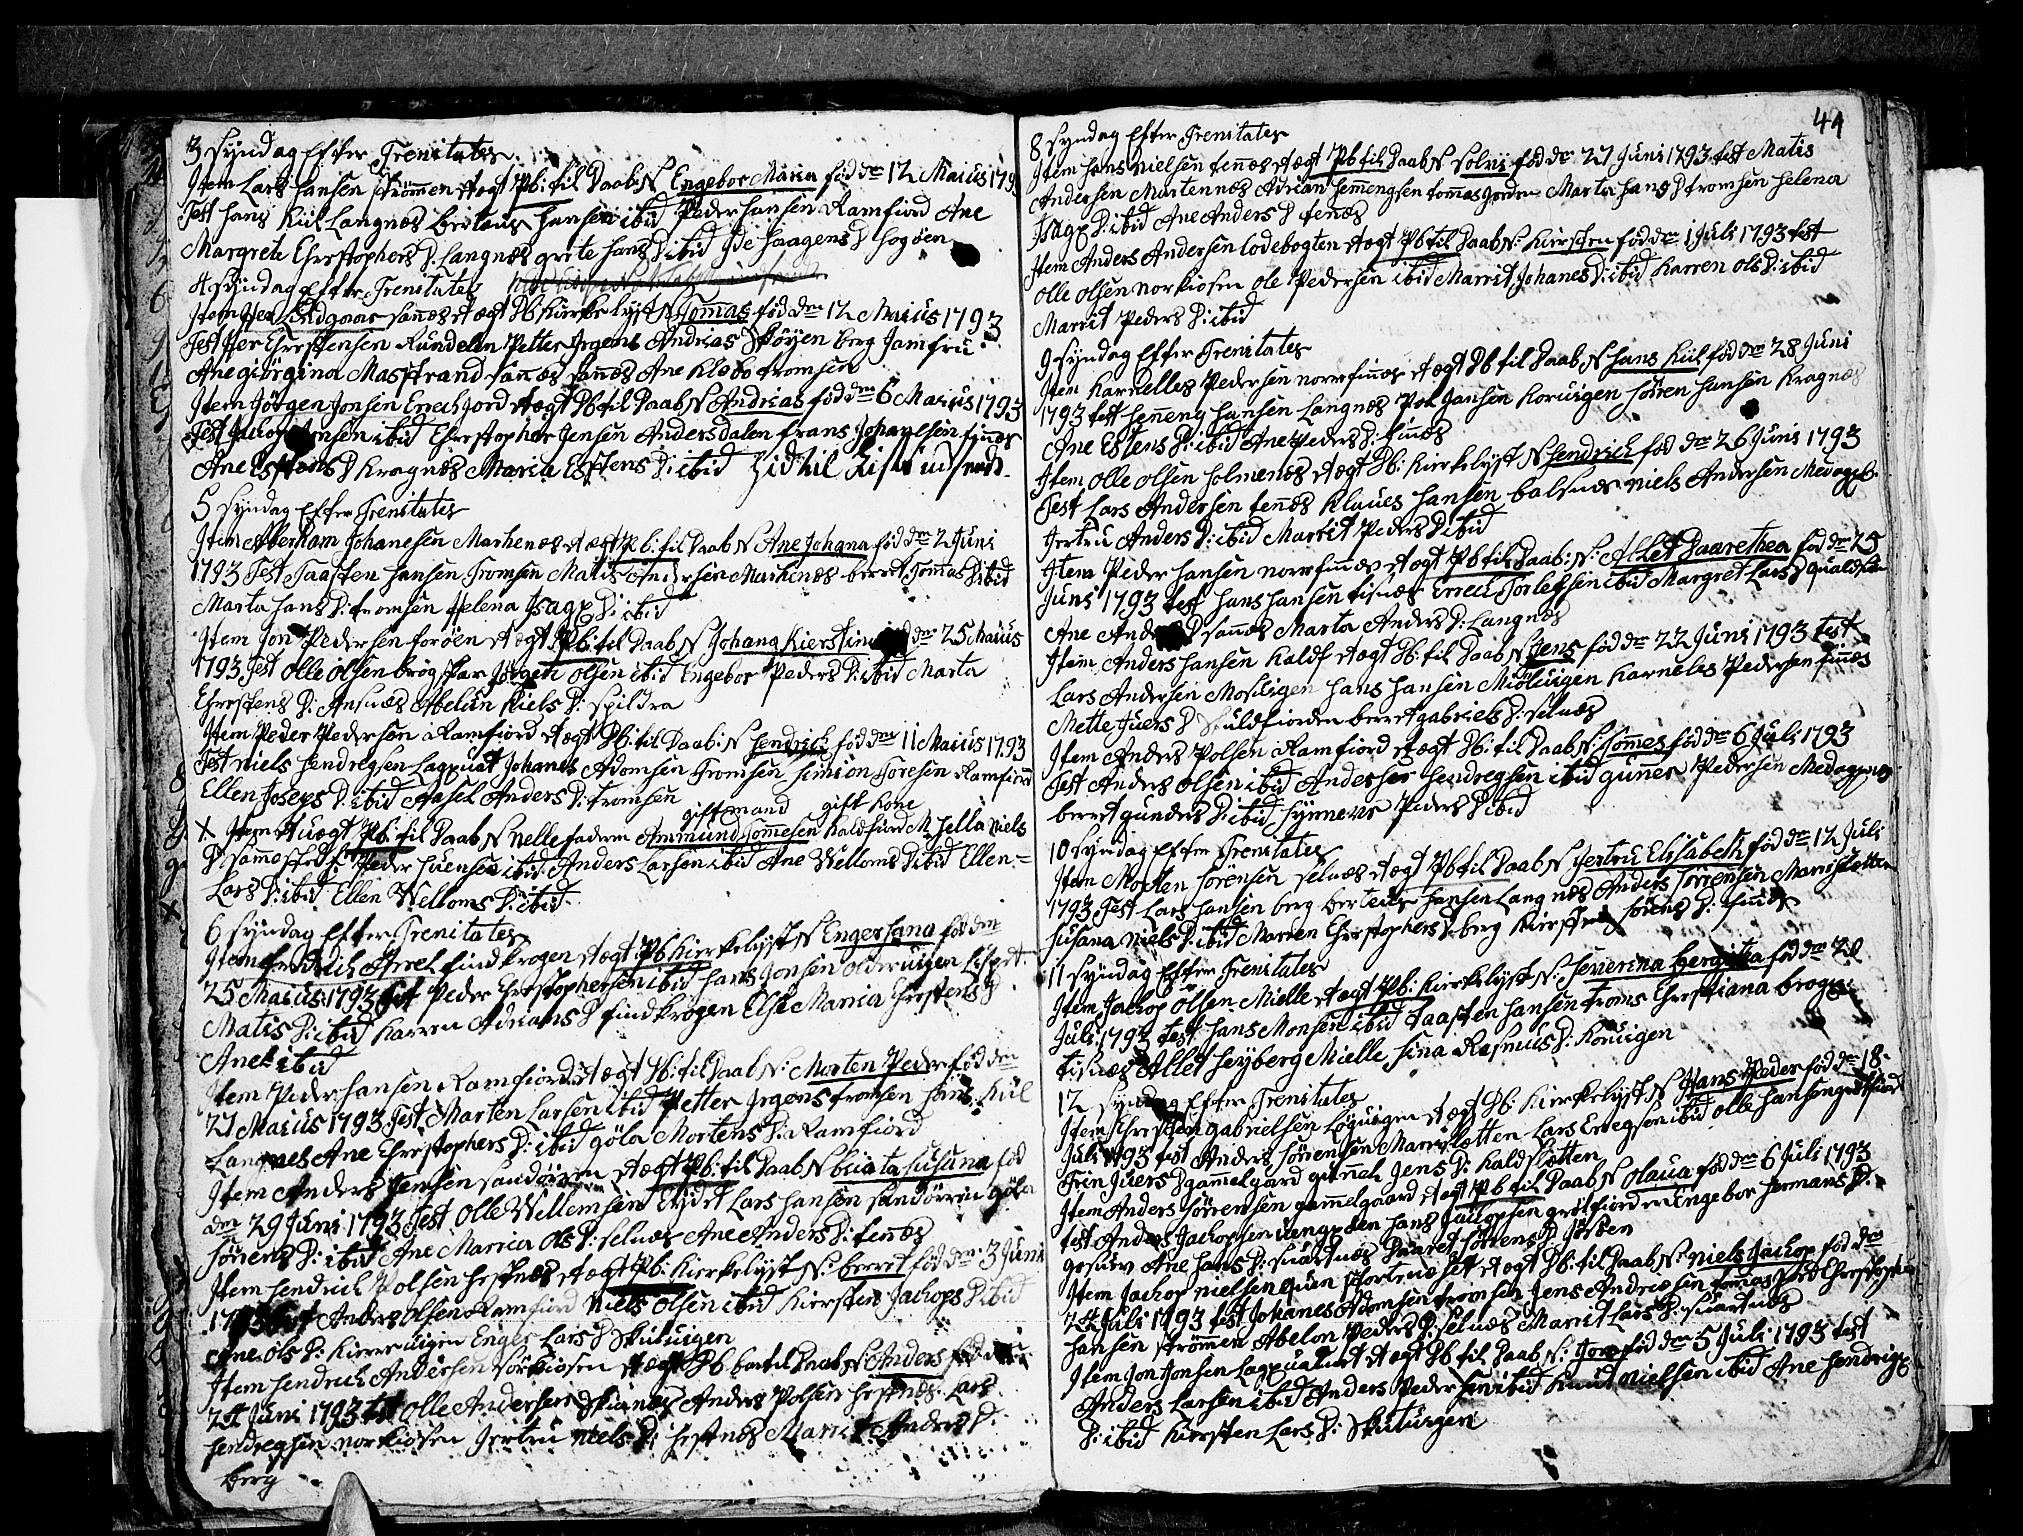 3 Syndag Efter Trenitates
Item Lars Hansen Strömmen et ægt Pb: til Daab N Engebor Maria föd den 12 Maius 179
Test Hans Kiil Langnæs berteus Hansen ibid Peder Hansen Ramfiord Ane
Margreta Chrestophers D: Langnæs grete Hans D: ibid Ide Haagens D Hogöen
4 Syndag Efter Trenitates
Item Her Lindgaar sanæs et ægt Pb Kierkelyst N Tomas föd den 12 Maius 1793
Test Her Chrestensen Rundelen Petter Irgens Andreas Röyen berg Jamfru
Ane giörgina Masstrand sanæs Ane Klæbo tromsen
Item Jörgen Jonsen Erechjord et ægt Pb til Daab N Andreas föd den 6 Marius 1793
Test Jacop Jensen ibid Chrestopher Jensen Andersdalen frans Johanesen finæs
Ane Estens D Kragnæs Maria Estens D: ibid
5 Syndag Efter Trenitates
Item Abreham Johanesen Marhenæs et ægt Pb: til Daab N Ane Johana föd den 2 Juni
1793 Test Taasten Hansen Tromsen Matis Andersen Marhenæs beret Tommas D ibid
Marta Hans D: tromsen Helena Isagx D: ibid
Item Jon Pedersen foröen et ægt Pb: til Daab N Johana Kierstina den 25 Maius
1793 Test Olle Olsen Jörgen Olsen ibid Engebor Peders D: ibid Marta
Chrestens D: Ansnæs Abelun Niels D: Spildra
Item Peder Pedersen Ramfiord et ægt Pb: til Daab: N Hendrich föd den 11 Maius 1793
Test Niels Hendregsen Lagxuat Johanes Adomsen Tromsen Simion Toresen Ramfiord
Ellen Joseps D: ibid Aasel Anders D: Tromsen
gift mand gift Kone
X Item et uægt Pb: til Daab N Nelle faderen Ammund Tommesen Kaldfiord M Hella Niels
D: samested Peder Suensen ibid Anders Larsen ibid Ane Welloms D ibid Ellen =
Lars D: ibid Ellen Welloms D: ibid
6 Syndag Efter Trenitates
Item fredrich Arrel findkrogen et ægt Pb Kierkelyst N Engerhana föd den
25 Maius 1793 test Peder Chrestophersen ibid Hans Jonsen olderuigen Lisbet
Matis D: ibid Karren Adrians D findkrogen Else Marria Chrestens D
Anek ibid
Item Peder Hansen Ramfiord et ægt Pb: til Daab N: Morten Peder föd den
27 Maius 1793 Test Marten Larsen ibid Petter Irgens Tromsen Hans Kiil
Langnes Ane Chrestophers D: ibid göla Mortens D: Ramfiord
Item Anders Jensen sandören et ægt Pb: til Daab N beata Susana föd
den 29 Juni 1793 Test Olle Wellemsen Eyd et Lars Hansen sandören göla
Sörens D: ibid Ane Marria Ols D: selnæs Ane Anders D: tennæs
Item Hendrich Polsen Hestnæs et ægt Pb: Kierkelyst N: berret föd den 3 Juni
1793 Test Anders Olsen Ramfiord Niels Olsen ibid Kiersten Jachops D ibid
Ane Ols D: Kierreuigen Enger Lars D Skutuigen
Item Hendrich Andersen Sörkiosen et ægt Pb til Daab N Anders föd den
24 Juni 1793 test Olle Andersen Skuanæs Anders Polsen Hestnæs Lars
Hendregsen norkiosen Jertru Niels D: Hestnæs Marrit Anders D:
berg
44
8 Syndag Efter Trenitates
Item Hans Nielsen tennes et ægt Pb til Daab N Solvi föd den 27 Juni 1793 test Matis
Andersen Martennæs Adrian Hemengsen tommasjorden Marta Hans D tromsen Helena
Isagx D: ibid Ane Anders D tenæs
Item Anders Andersen Lodebogten et ægt Pb til Daab N: Kiersten föd den 1 Juli 1793 test
Olle Olsen norkiosen Ole Pedersen ibid Marrit Johanes D: ibid Karren ols D: ibid
Marrit Peders D: ibid
9 Syndag Efter Trenitates
Item Karnelles Pedersen norrfinnes et ægt Pb til Daab N Hans Kiil föd den 28 Juni
1793 test Henneng Hansen Langnæs Pol Jansen Koruigen Sören Hansen Kragnæs
Ane Estens D: ibid Ane Peders D: finæs
Item Olle Olsen Holmenæs et ægt Pb: Kierkelyst N Hendrich föd den 26 Juni 1793
Test Lars Andersen tennæs Klaues Hansen balsnæs Niels Andersen
Jertru Anders D: ibid Marrit Peders D ibid
Item Peder Hansen norrfinnæs et ægt Pb til Daab: N: Allet Daarethea föd den 25
Juni 1793 test Hans Hansen tisnæs Errech Torlefsen ibid Margret Lars D
Ane Anders D sannæs Marta Anders D: Langnæs
Item Anders Hansen Kaldf et ægt Pb: til Daab N Jens föd den 22 Juni 1793 test
Lars Andersen Mosuigen Hans Hansen Miöluigen Karneles Pedersen finæs
Mette Juers D Skulsfiorden berret gabriels D: selnæs
Item Anders Polsen Ramfiord et ægt Pb: til Daab N: Tommes föd den 6 Juli 1793
Test Anders Olsen ibid Anderser Hendregsen ibid gunner Pedersen
beret gunders D: ibid Synneve Peders D: ibid
10 Syndag Efter Trenitates
Item Morten Sörensen selnæs et ægt Pb til Daab N Jertru Elisabeth föd den 12 Juli
1793 Test Lars Hansen berg berteus Hansen Langnæs Anders Sörrensen Marrislotten
Susana Niels D: ibid Marren Chrestophers D: berg Kiersten Sörens D: finæs
11 Syndag Efter Trenitates
Item Jachop Olsen Mielle et ægt Pb: Kierkelyst N: Severina bergitta föd den 20
Juli 1793 test Hans Monsen ibid Taasten Hansen Troms Chrestiana
tisnæs Allet Heyberg Mielle Sina Rasmus D: Koruigen
12 Syndag Efter Trenitates
Item Chresten gabrielsen Löguigen et ægt Pb: Kierkelyst N Hans Peder föd den 18
Juli 1793 test Anders Sörrensen Marrislotten Lars Erregsen ibid Olle Hansen
Tren Juers D gamelgard gunnel Jens D: Kaldslotten
Item Anders Sörrensen gammelgaard et ægt Pb til Daab N Olaua föd den 6 Juli 1793
test Anders Jachopsen Hans Jachopsen grötfiorden Engebor Hermans D:
Ane Hans D: suartnæs Daaret Sörrens D Jörsen
Item Jachop Nielsen quan et ægt Pb: til Daab N: Niels Jachop föd den
24 Juli 1793 test Johanes Adomsen tromsen Jens Andersen tomasjord Chrestopher
Hansen Strömmen Abelon Peders D: selnæs Marrit Lars D: suartnæs
Item Jon Jonsen Lagxuatnet et ægt Pb til Daab N: föd den 5 Juli 1793 test
Anders Larsen ibid Anders Pedersen ibid Knud Nielsen ibid Ane Hendrigx
D: ibid Kiersten Lars D: Skutuigen